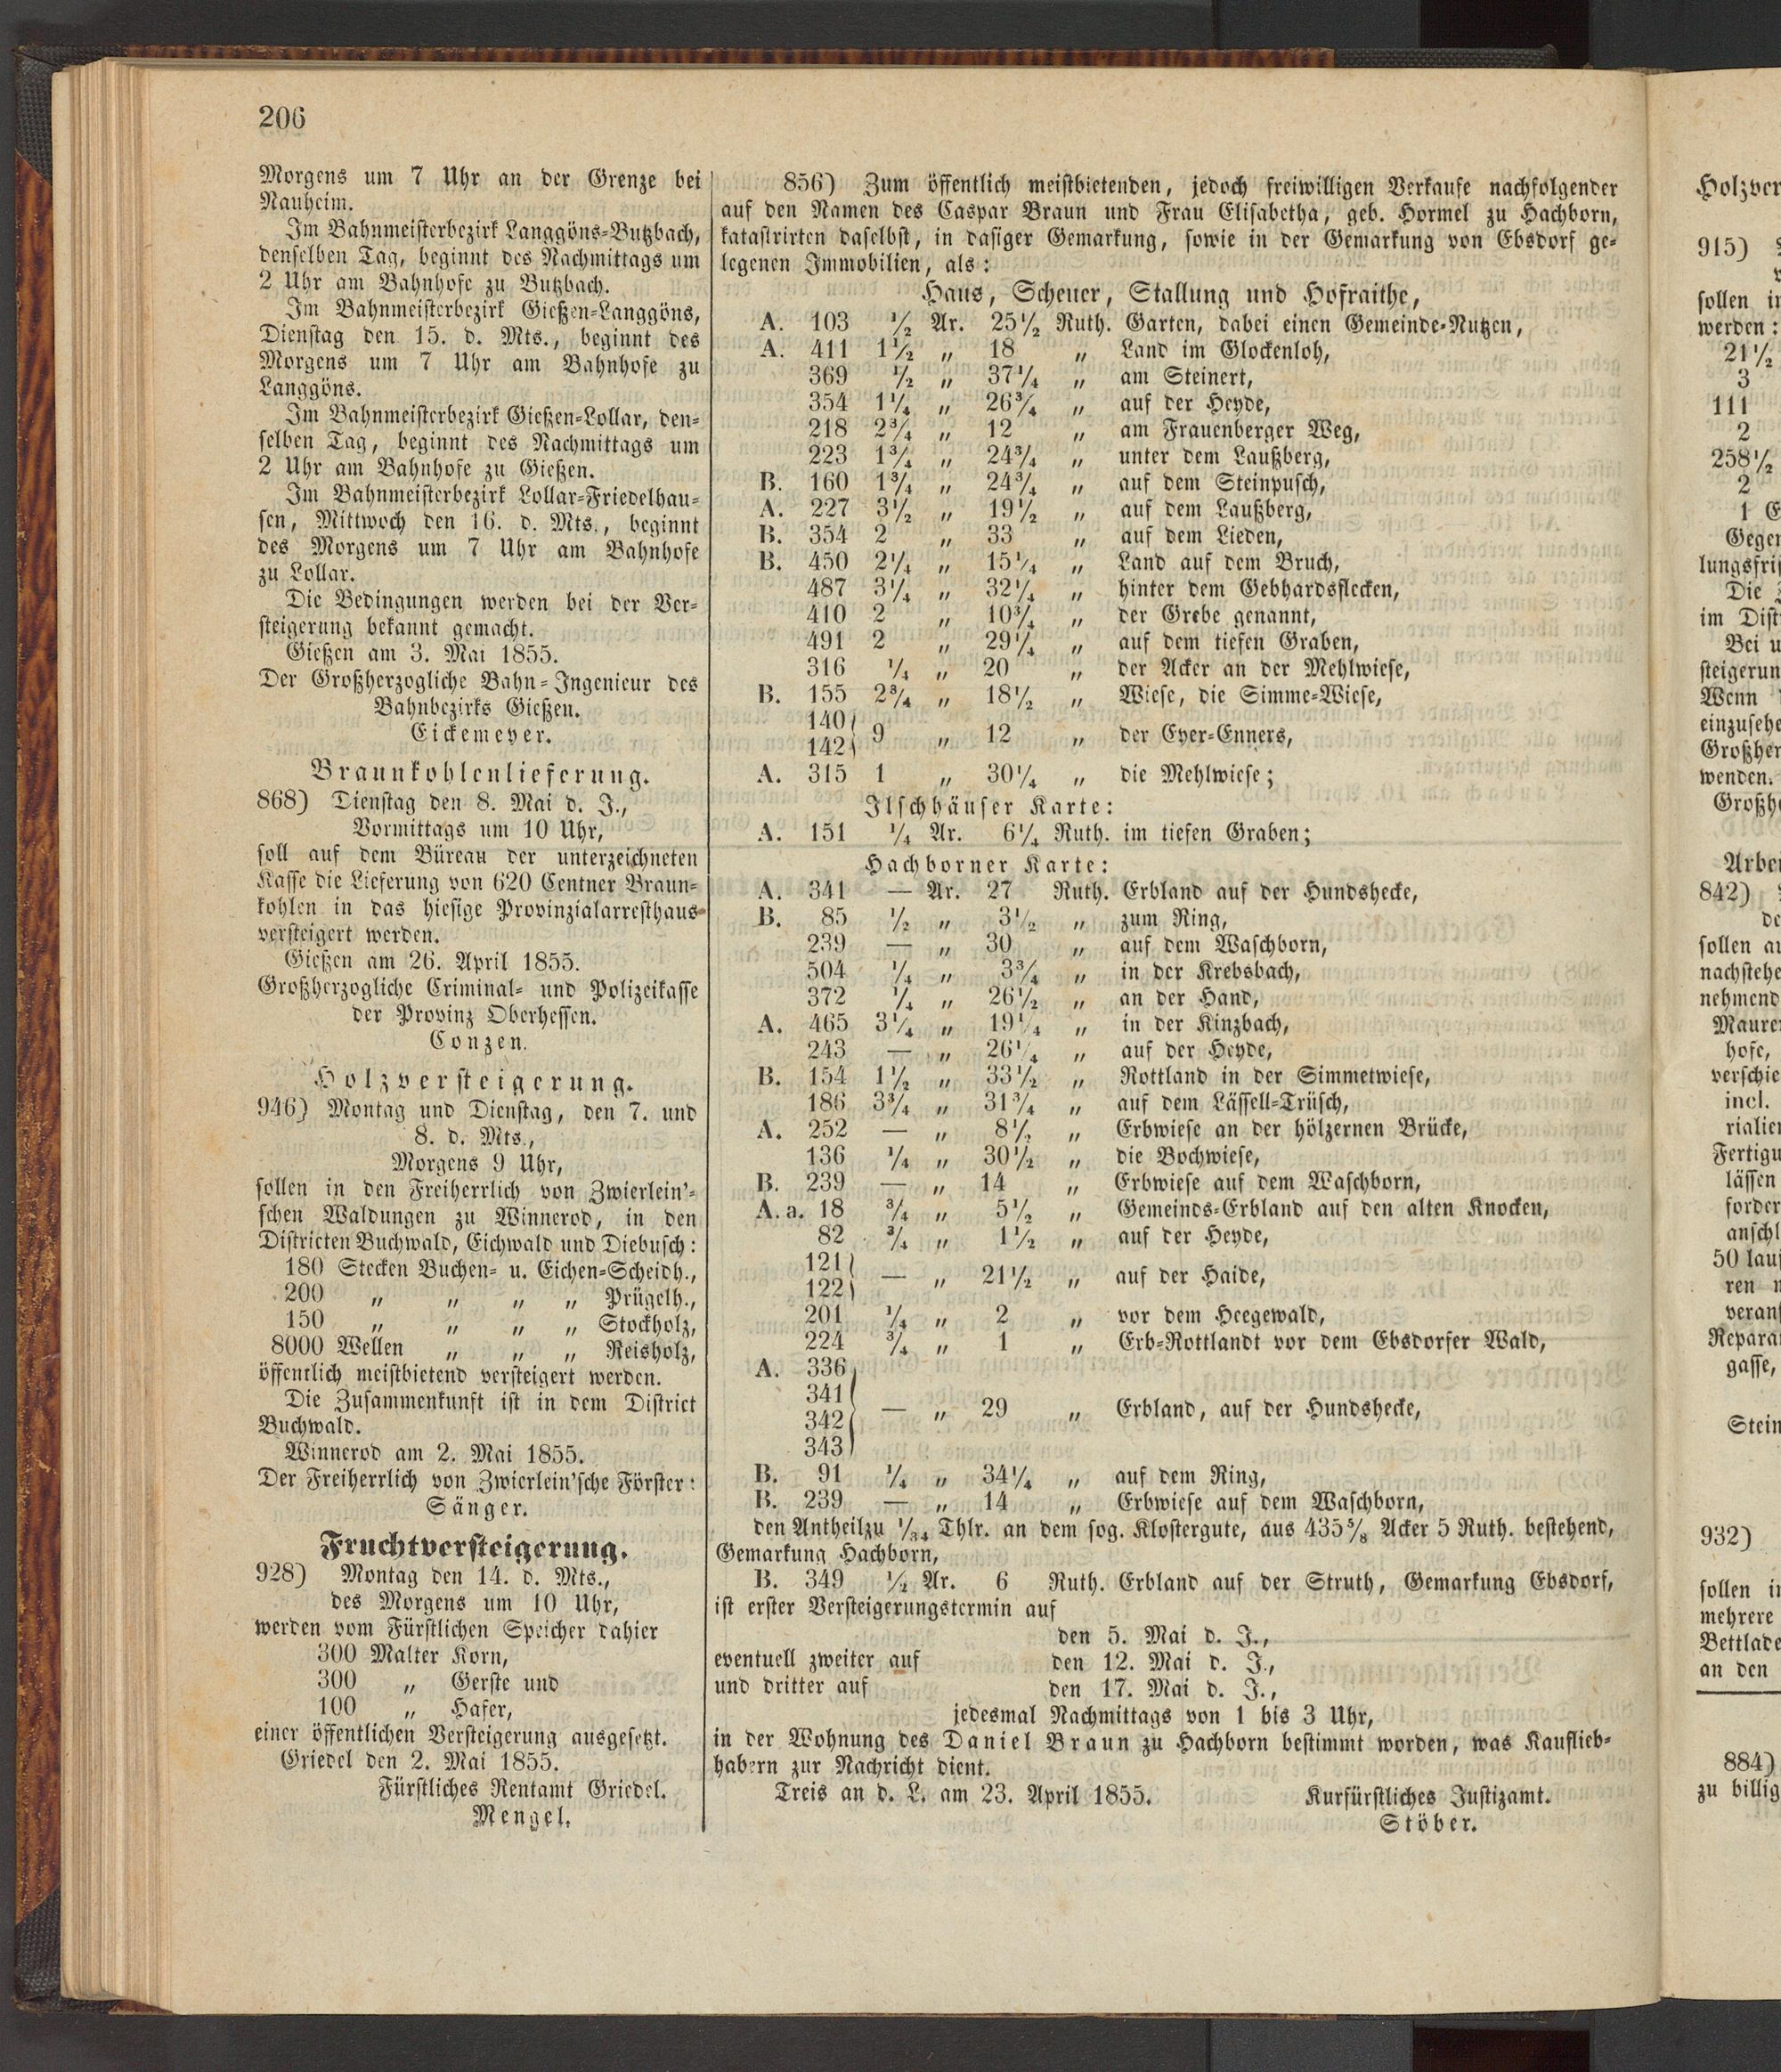 206
Morgens um 7 Uhr an der Grenze bei
Nauheim.
Im Bahnmeisterbezirk Langgöns-Butzbach,
denselben Tag, beginnt des Nachmittags um
2 Uhr am Bahnhofe zu Butzbach.
Im Bahnmeisterbezirk Gießen-Langgöns,
Dienstag den 15. d. Mts., beginnt des
Morgens um 7 Uhr am Bahnhofe zu
Langgöns.
Im Bahnmeisterbezirk Gießen-Lollar, den-
selben Tag, beginnt des Nachmittags um
2 Uhr am Bahnhofe zu Gießen.
Im Bahnmeisterbezirk Lollar-Friedelhau-
sen, Mittwoch den 16. d. Mts., beginnt
des Morgens um 7 Uhr am Bahnhofe
zu Lollar.
Die Bedingungen werden bei der Ver-
steigerung bekannt gemacht.
Gießen am 3. Mai 1855.
Der Großherzogliche Bahn-Ingenieur des
Bahnbezirks Gießen.
Eickemeyer.
Braunkohlenlieferung.
868) Dienstag den 8. Mai d. J.,
Vormittags um 10 Uhr,
soll auf dem Büreau der unterzeichneten
Kasse die Lieferung von 620 Centner Braun-
kohlen in das hiesige Provinzialarresthaus
versteigert werden.
Gießen am 26. April 1855.
Großherzogliche Criminal- und Polizeikasse
der Provinz Oberhessen.
Conzen.
Holzversteigerung.
946) Montag und Dienstag, den 7. und
8. d. Mts.,
Morgens 9 Uhr,
sollen in den Freiherrlich von Zwierlein'-
schen Waldungen zu Winnerod, in den
Districten Buchwald, Eichwald und Diebusch:
180 Stecken Buchen- u. Eichen-Scheidh.,
200 „ „ „ „ Prügelh.,
150 „ „ „ „ Stockholz,
8000 Wellen „ „ „ Reisholz,
öffentlich meistbietend versteigert werden.
Die Zusammenkunft ist in dem District
Buchwald.
Winnerod am 2. Mai 1855.
Der Freiherrlich von Zwierlein'sche Förster:
Sänger.
Fruchtversteigerung.
928) Montag den 14. d. Mts.,
des Morgens um 10 Uhr,
werden vom Fürstlichen Speicher dahier
300 Malter Korn,
300 „ Gerste und
100 „ Hafer,
einer öffentlichen Versteigerung ausgesetzt.
Griedel den 2. Mai 1855.
Fürstliches Rentamt Griedel.
Mengel.
856) Zum öffentlich meistbietenden, jedoch freiwilligen Verkaufe nachfolgender
auf den Namen des Caspar Braun und Frau Elisabetha, geb. Hormel zu Hachborn,
katastrirten daselbst, in dasiger Gemarkung, sowie in der Gemarkung von Ebsdorf ge-
legenen Immobilien, als:
Haus, Scheuer, Stallung und Hofraithe,
A. 103 ½ Ar. 25½ Ruth. Garten, dabei einen Gemeinde-Nutzen,
A. 411 1½ „ 18 „ Land im Glockenloh,
369 ½ „ 37¼ „ am Steinert,
354 1¼ „ 26¾ „ auf der Heyde,
218 2¾ „ 12 „ am Frauenberger Weg,
223 1¾ „ 24¾ „ unter dem Laußberg,
B. 160 1¾ „ 24¾ „ auf dem Steinpusch,
A. 227 3½ „ 19½ „ auf dem Laußberg,
B. 354 2 „ 33 „ auf dem Lieden,
B. 450 2¼ „ 15¼ „ Land auf dem Bruch,
487 3¼ „ 32¼ „ hinter dem Gebhardsflecken,
410 2 „ 10¾ „ der Grebe genannt,
491 2 „ 29¼ „ auf dem tiefen Graben,
316 ¼ „ 20 „ der Acker an der Mehlwiese,
B. 155 2¾ „ 18½ „ Wiese, die Simme-Wiese,
140}
142} 9 „ 12 „ der Eyer-Enners,
A. 315 1 „ 30¼ „ die Mehlwiese;
Ilschhäuser Karte:
A. 151 ¼ Ar. 6¼ Ruth. im tiefen Graben;
Hachborner Karte:
A. 341 — Ar. 27 Ruth. Erbland auf der Hundshecke,
B. 85 ½ „ 3½ „ zum Ring,
239 — „ 30 „ auf dem Waschborn,
504 ¼ „ 3¾ „ in der Krebsbach,
372 ¼ „ 26½ „ an der Hand,
A. 465 3¼ „ 19¼ „ in der Kinzbach,
243 — „ 26¼ „ auf der Heyde,
B. 154 1½ „ 33½ „ Rottland in der Simmetwiese,
186 3¾ „ 31¾ „ auf dem Lässell-Trüsch,
A. 252 — „ 8½ „ Erbwiese an der hölzernen Brücke,
136 ¼ „ 30½ „ die Bochwiese,
B. 239 — „ 14 „ Erbwiese auf dem Waschborn,
A. a. 18 ¾ „ 5½ „ Gemeinds-Erbland auf den alten Knocken,
82 ¾ „ 1½ „ auf der Heyde,
121}
122} — „ 21½ „ auf der Haide,
201 ¼ „ 2 „ vor dem Heegewald,
224 ¾ „ 1 „ Erb-Rottlandt vor dem Ebsdorfer Wald,
A. 336
341
342 — „ 29 „ Erbland, auf der Hundshecke,
343
B. 91 ¼ „ 34¼ „ auf dem Ring,
B. 239 — „ 14 „ Erbwiese auf dem Waschborn,
den Antheil zu 1/34 Thlr. an dem sog. Klostergute, aus 435⅝ Acker 5 Ruth. bestehend,
Gemarkung Hachborn,
B. 349 ½ Ar. 6 Ruth. Erbland auf der Struth, Gemarkung Ebsdorf,
ist erster Versteigerungstermin auf
den 5. Mai d. J.,
eventuell zweiter auf den 12. Mai d. J.,
und dritter auf den 17. Mai d. J.,
jedesmal Nachmittags von 1 bis 3 Uhr,
in der Wohnung des Daniel Braun zu Hachborn bestimmt worden, was Kauflieb-
habern zur Nachricht dient.
Treis an d. L. am 23. April 1855. Kurfürstliches Justizamt.
Stöber.
915)
sollen
werden:
21½
3
111
2
258½
2
1
Die
im
Bei
Wenn
wenden.
842)
sollen
hofe,
incl.
50
932)
sollen
mehrere
an den
884)